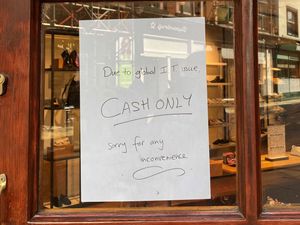 Due to global I T issue,
CASH ONLY
sorry for any
inconvenience